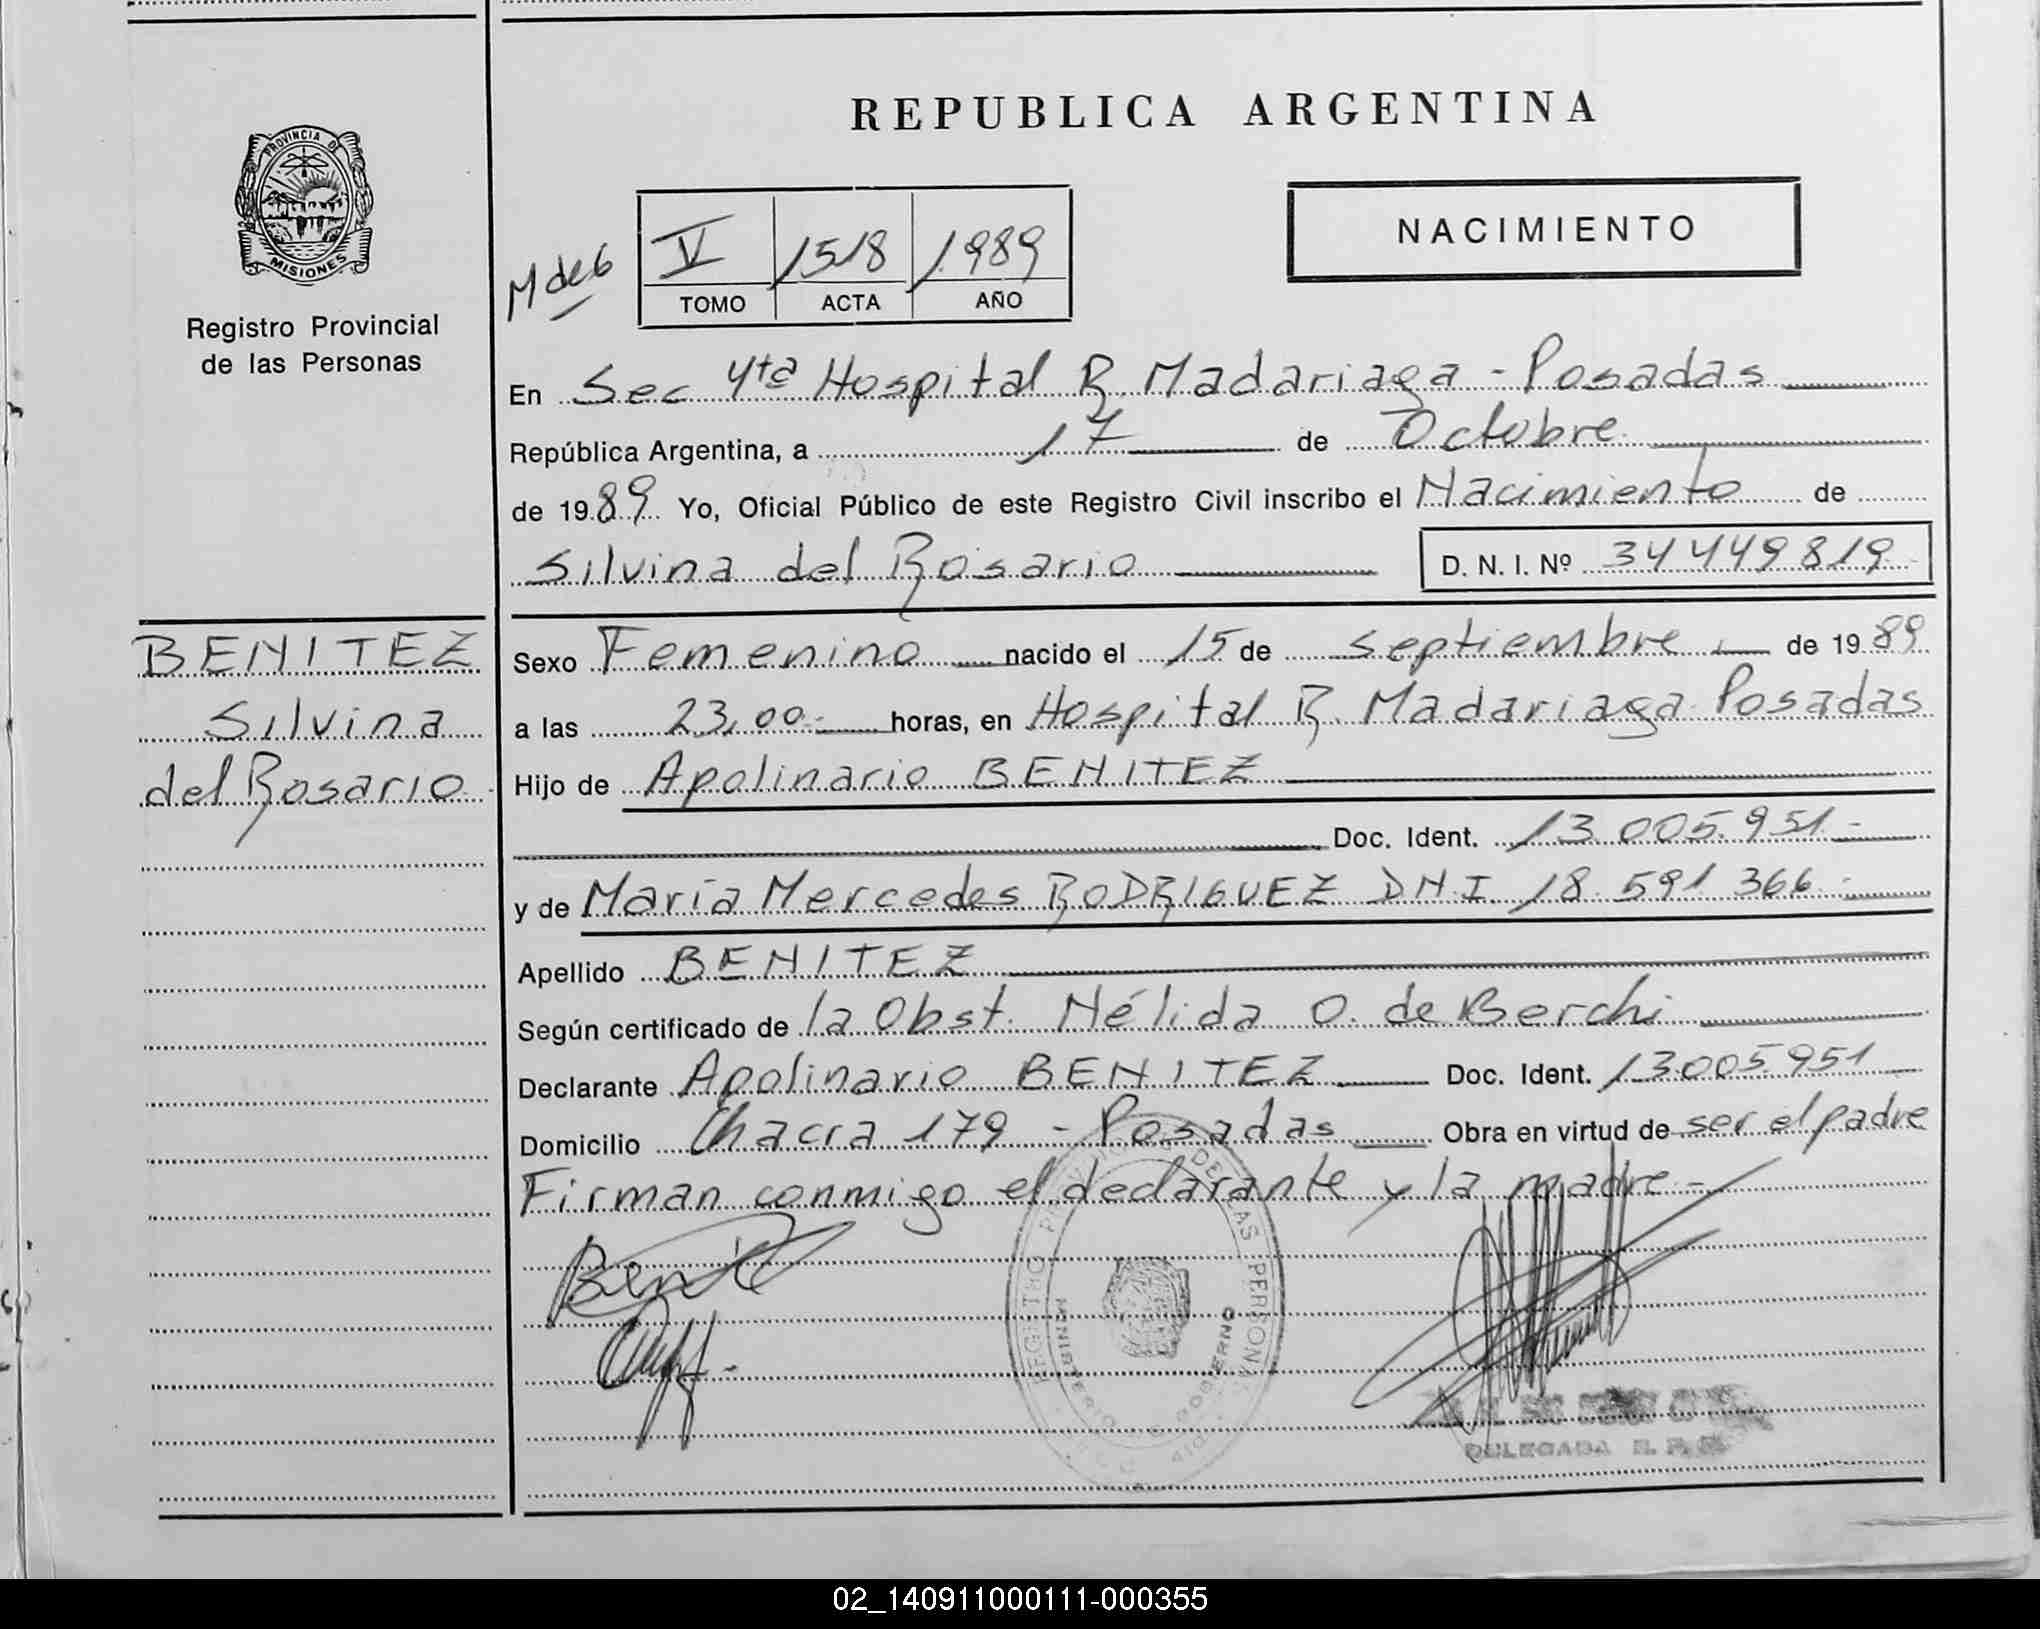 PROVINCIA D
MISIONES
Registro Provincial
de las Personas
BENITEZ
Silvina
del Rosario
REPUBLICA ARGENTINA
NACIMIENTO
M de 6
V 1518 1989
TOMO ACTA AÑO
En Sec 4ta Hospital R. Madariaga - Posadas
República Argentina, a 17 de Octubre
de 1989 Yo, Oficial Público de este Registro Civil inscribo el Nacimiento de
Silvina del Rosario D. N. I. Nº 34449819
Sexo Femenino nacido el 15 de septiembre de 1989
a las 23,00 horas, en Hospital R. Madariaga Posadas
Hijo de Apolinario BENITEZ
Doc. Ident. 13.005.951.-
y de María Mercedes RODRIGUEZ D.N.I. 18.591.366.-
Apellido BENITEZ
Según certificado de la Obst. Nélida O. de Berchi
Declarante Apolinario BENITEZ Doc. Ident. 13.005.951
Domicilio Chacra 179 - Posadas Obra en virtud de ser el padre
Firman conmigo el declarante y la madre.-
REGISTRO PROVINCIAL DE LAS PERSONAS
MINISTERIO DE GOBIERNO
DELEGADA R. P. P.
02_140911000111-000355